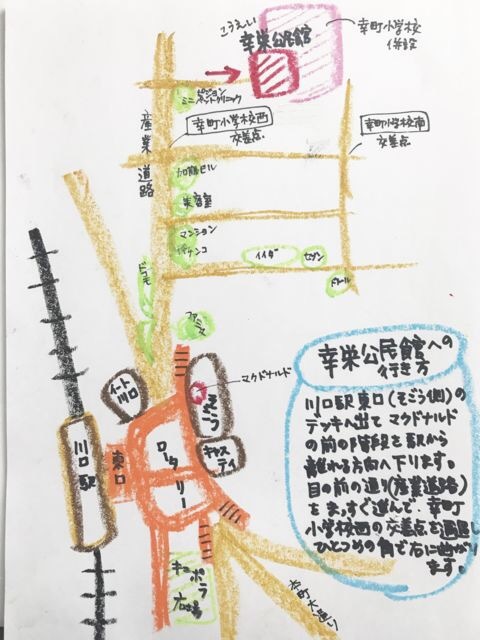 こうえい
幸栄公民館
幸町小学校
併設
ピジョン
ミニペットクリニック
産業道路
幸町小学校西
交差点
幸町小学校南
交差点
加藤ビル
美容室
マンション
パチンコ
イイダ
セブン
ドコモ
ファミマ
マクドナルド
イート川口
そごう
キャスティ
川口駅
東口
ロータリー
キュポラ広場
本町大通り
幸栄公民館への
行き方
川口駅東口(そごう側)の
デッキへ出て マクドナルド
の前の階段を駅から
離れる方向へ下ります。
目の前の通り(産業道路)
をまっすぐ進んで、幸町
小学校西の交差点を通過し
ひとつめの角で右に曲がり
ます。